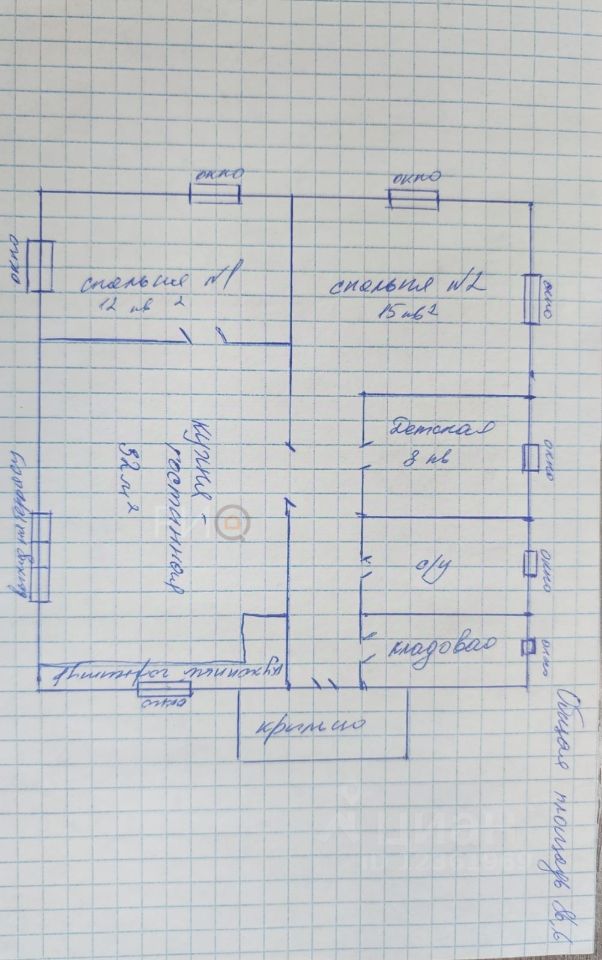 окно
окно
окно
спальня №1
12 кв 2
спальня №2
15 кв2
окно
кухня -
гостинная
32 м2
Детская
8 кв
окно
с/у
окно
кладовао
окно
кухонный гарнитур
окно
крыльцо
Общая площадь